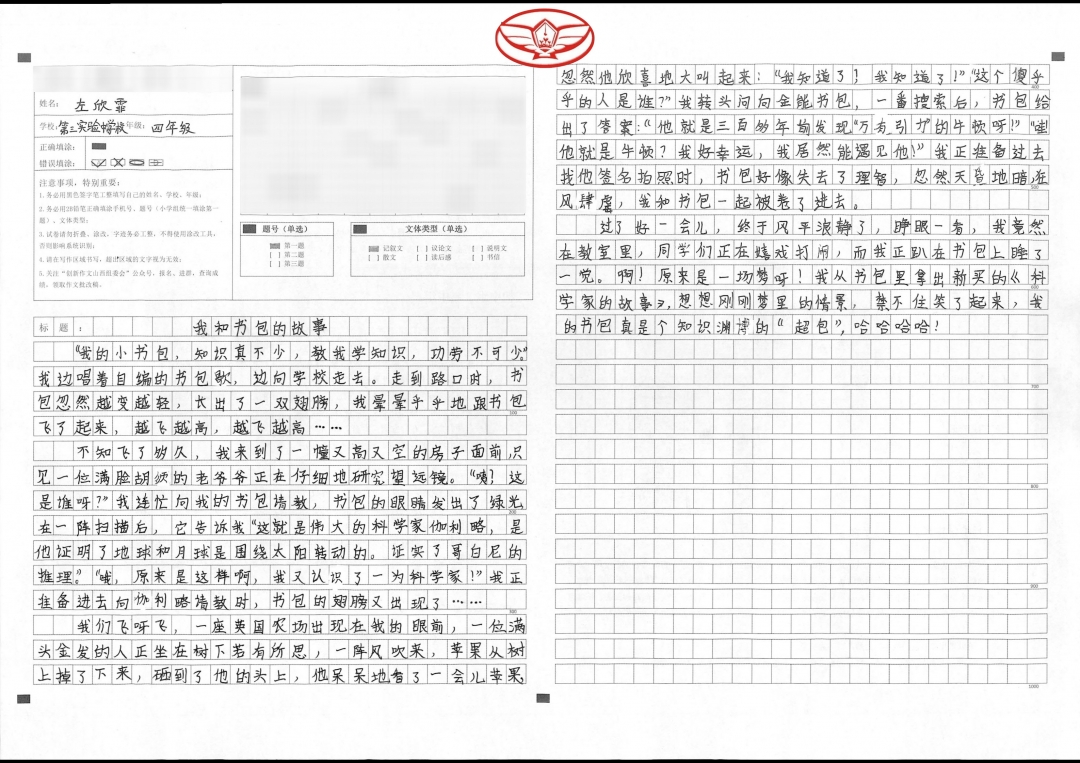 姓名：左欣霏
学校：第三实验学校 年级：四年级
正确填涂：
错误填涂：
注意事项，特别重要：
1.务必用黑色签字笔工整填写自己的姓名、学校、年级；
2.务必用2B铅笔正确填涂手机号、题号（小学组统一填涂第一
题）、文体类型；
3.试卷请勿折叠、涂改，字迹务必工整，不得使用涂改工具，
否则影响系统识别；
4.请在写作区域书写，超出区域的文字视为无效；
5.关注“创新作文山西组委会”公众号，报名、进群、查询成
绩、领取作文批改稿。
题号（单选）
第一题
[ ] 第二题
[ ] 第三题
文体类型（单选）
记叙文 [ ] 议论文 [ ] 说明文
[ ] 散文 [ ] 读后感 [ ] 书信
标 题：我和书包的故事
“我的小书包，知识真不少，教我学知识，功劳不可少。”
我边唱着自编的书包歌，边向学校走去。走到路口时，书
包忽然越变越轻，长出了一双翅膀，我晕晕乎乎地跟书包
100
飞了起来，越飞越高，越飞越高……
不知飞了多久，我来到了一幢又高又空的房子面前，只
见一位满脸胡须的老爷爷正在仔细地研究望远镜。“咦？这
是谁呀？”我连忙向我的书包请教，书包的眼睛发出了绿光，
200
在一阵扫描后，它告诉我“这就是伟大的科学家伽利略，是
他证明了地球和月球是围绕太阳转动的。证实了哥白尼的
推理。”“哦，原来是这样啊，我又认识了一为科学家！”我正
准备进去向伽利略请教时，书包的翅膀又出现了……
300
我们飞呀飞，一座英国农场出现在我的眼前，一位满
头金发的人正坐在树下若有所思，一阵风吹来，苹果从树
上掉了下来，砸到了他的头上，他呆呆地看了一会儿苹果，
忽然他欣喜地大叫起来：“我知道了！我知道了！”“这个傻乎
400
乎的人是谁？”我转头问向全能书包，一番搜索后，书包给
出了答案：“他就是三百多年前发现“万有引力”的牛顿呀！”“哇！
他就是牛顿？我好幸运，我居然能遇见他！”我正准备过去
找他签名拍照时，书包好像失去了理智，忽然天昏地暗，狂
500
风肆虐，我和书包一起被卷了进去。
过了好一会儿，终于风平浪静了，睁眼一看，我竟然
在教室里，同学们正在嬉戏打闹，而我正趴在书包上睡了
一觉。啊！原来是一场梦呀！我从书包里拿出新买的《科
600
学家的故事》，想想刚刚梦里的情景，禁不住笑了起来，我
的书包真是个知识渊博的“超包”，哈哈哈哈！
700
800
900
1000